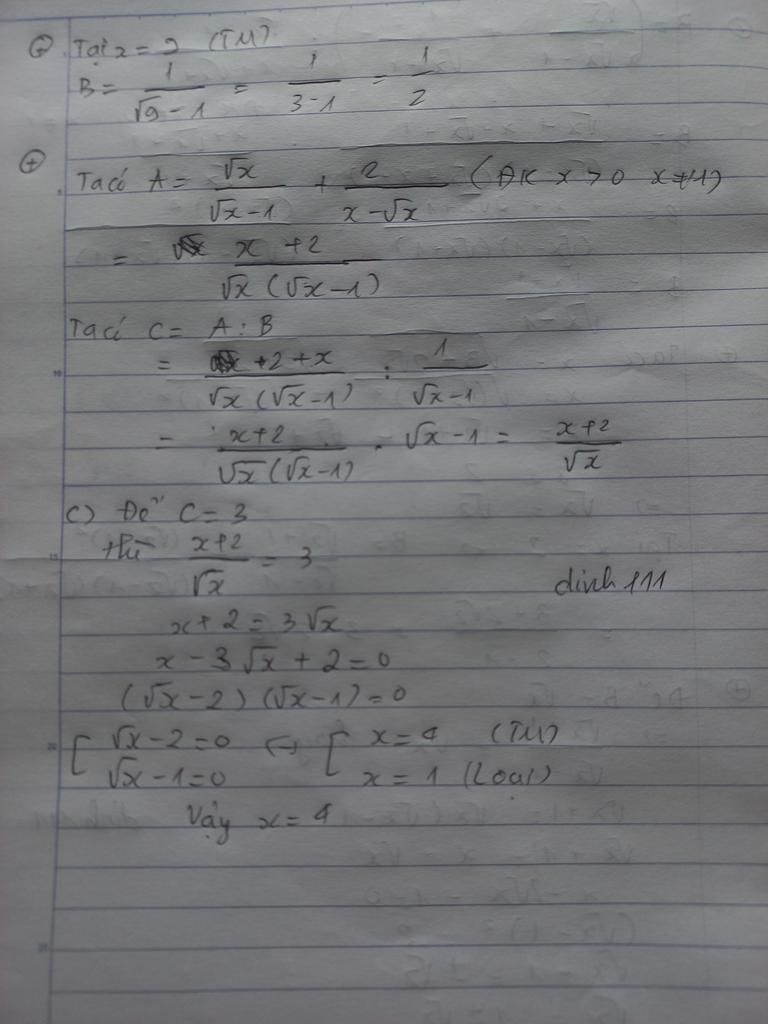 Tại x = 9 (TM)
B = 1/(√9 - 1) = 1/(3 - 1) = 1/2
⊕ Ta có A = √x/(√x - 1) + 2/(x - √x) (ĐK x > 0 x ≠ 1)
= (x + 2)/(√x (√x - 1))
Ta có C = A : B
= (+ 2 + x)/(√x (√x - 1)) : 1/(√x - 1)
= (x + 2)/(√x (√x - 1)) . √x - 1 = (x + 2)/√x
c) Để C = 3
thì (x + 2)/√x = 3
dinh 111
x + 2 = 3√x
x - 3√x + 2 = 0
(√x - 2) (√x - 1) = 0
[ √x - 2 = 0 ↔ [ x = 4 (TM)
√x - 1 = 0 x = 1 (Loại)
Vậy x = 4